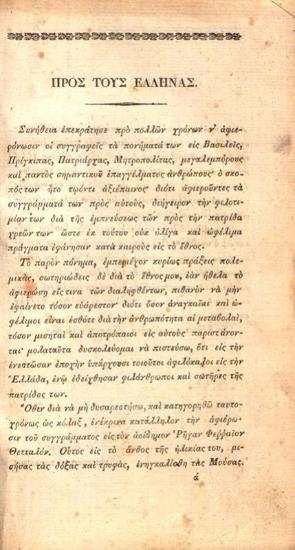 ΠΡΟΣ ΤΟΥΣ ΕΛΛΗΝΑΣ.
Συνήθεια ἐπεκράτησε πρὸ πολλῶν χρόνων ν' ἀφιε-
ρόνωσιν οἱ συγγραφεῖς τὰ πονήματά των εἰς Βασιλεῖς,
Πρίγκιπας, Πατριάρχας, Μητροπολίτας, μεγαλεμπόρους
καὶ παντὸς σημαντικοῦ ἐπαγγέλματος ἀνθρώπους· ὁ σκο-
πός των ἦτο τῳόντι ἀξιέπαινος διότι ἀφιεροῦντες τὰ
συγγράμματά των πρὸς αὐτοὺς, διήγειρον τὴν φιλοτι-
μίαν των διὰ τῆς ἐμπνεύσεως τῶν πρὸς τὴν πατρίδα
χρεῶν των ὥστε ἐκ τούτου οὐκ ὀλίγα καὶ ὠφέλιμα
πράγματα ἐφάνησαν κατὰ καιροὺς εἰς τὸ ἔθνος.
Τὸ παρὸν πόνημα, ἐμπεριέχον κυρίως πράξεις πολε-
μικὰς, σωτηριώδεις δὲ διὰ τὸ ἔθνος μου, ἐὰν ἤθελα τὸ
ἀφιερώσῃ εἴς τινα τῶν διαληφθέντων, πιθανὸν νὰ μὴν
ἐφαίνετο τόσον εὐάρεστον διότι ὅσον ἀναγκαῖαι καὶ ὠ-
φέλιμοι εἶναι ἐσθότε διὰ τὴν ἀνθρωπότητα αἱ μεταβολαὶ,
τόσον μισηταὶ καὶ ἀποτρόπαιοι εἰς αὐτοὺς παριστάνον-
ται· μολαταῦτα δυσκολεύομαι νὰ πιστεύσω, ὅτι εἰς τὴν
ἐνεστῶσαν ἐποχὴν ὑπάρχουν τοιοῦτοι ἀφιλόκαλοι εἰς τὴν
Ἑλλάδα, ἐνῷ ἐδείχθησαν φιλάνθρωποι καὶ σωτῆρες τῆς
πατρίδος των.
Ὅθεν διὰ νὰ μὴ δυσαρεστήσω, καὶ κατηγορηθῶ ταυτο-
χρόνως ὡς κόλαξ, ἐνέκρινα κατάλληλον τὴν ἀφιέρω-
σιν τοῦ συγγράμματος εἰς τὸν ἀοίδημον Ῥήγαν Φερραῖον
Θετταλόν. Οὗτος εἰς τὸ ἄνθος τῆς ἡλικίας του, μι-
σήσας τὰς δόξας καὶ τρυφὰς, ἐνηγκαλίσθη τὰς Μούσας.
ά